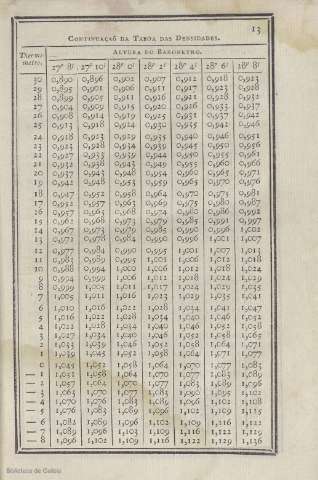 13
CONTINUAÇAÕ DA TABOA DAS DENSIDADES.
Thermo-metro.
ALTURA DO BAROMETRO.
27ᵖ 8ˡ 27ᵖ 10ˡ 28ᵖ 0ˡ 28ᵖ 2ˡ 28ᵖ 4ˡ 28ᵖ 6ˡ 28ᵖ 8ˡ
30 0,890 0,896 0,902 0,907 0,912 0,918 0,923
29 0,895 0,901 0,906 0,911 0,917 0,923 0,928
28 0,899 0,905 0,911 0,916 0,921 0,928 0,932
27 0,904 0,909 0,915 0,920 0,926 0,933 0,937
26 0,908 0,914 0,919 0,925 0,931 0,937 0,942
25 0,913 0,918 0,924 0,930 0,935 0,942 0,946
24 0,918 0,923 0,929 0,935 0,940 0,946 0,951
23 0,923 0,928 0,934 0,939 0,945 0,950 0,956
22 0,927 0,933 0,939 0,944 0,950 0,955 0,961
21 0,932 0,938 0,943 0,949 0,955 0,960 0,966
20 0,937 0,943 0,948 0,954 0,960 0,965 0,971
19 0,942 0,948 0,953 0,959 0,965 0,970 0,976
18 0,947 0,952 0,958 0,964 0,970 0,975 0,981
17 0,952 0,957 0,963 0,969 0,975 0,980 0,987
16 0,957 0,963 0,968 0,974 0,980 0,986 0,992
15 0,962 0,968 0,973 0,979 0,985 0,991 0,997
14 0,967 0,973 0,979 0,985 0,990 0,996 1,002
13 0,972 0,978 0,984 0,990 0,996 1,001 1,007
12 0,977 0,983 0,990 0,995 1,001 1,007 1,013
11 0,983 0,989 0,995 1,001 1,006 1,012 1,018
10 0,988 0,994 1,000 1,006 1,012 1,018 1,024
9 0,994 0,999 1,006 1,012 1,018 1,024 1,029
8 0,999 1,005 1,011 1,017 1,024 1,029 1,035
7 1,005 1,011 1,016 1,023 1,029 1,035 1,041
6 1,010 1,016 1,022 1,028 1,034 1,041 1,047
5 1,016 1,022 1,028 1,034 1,040 1,046 1,052
4 1,022 1,028 1,034 1,040 1,046 1,052 1,058
3 1,027 1,034 1,040 1,046 1,052 1,058 1,065
2 1,033 1,039 1,046 1,052 1,058 1,064 1,071
1 1,039 1,045 1,052 1,058 1,064 1,071 1,077
0 1,045 1,052 1,058 1,064 1,070 1,077 1,083
— 1 1,051 1,058 1,064 1,070 1,077 1,083 1,089
— 2 1,057 1,064 1,070 1,077 1,083 1,089 1,096
— 3 1,063 1,070 1,077 1,083 1,090 1,095 1,102
— 4 1,070 1,076 1,083 1,089 1,096 1,102 1,108
— 5 1,076 1,083 1,089 1,096 1,102 1,109 1,115
— 6 1,082 1,089 1,096 1,102 1,109 1,116 1,122
— 7 1,089 1,096 1,103 1,109 1,116 1,122 1,129
— 8 1,096 1,102 1,109 1,116 1,122 1,129 1,136
Biblioteca de Galicia